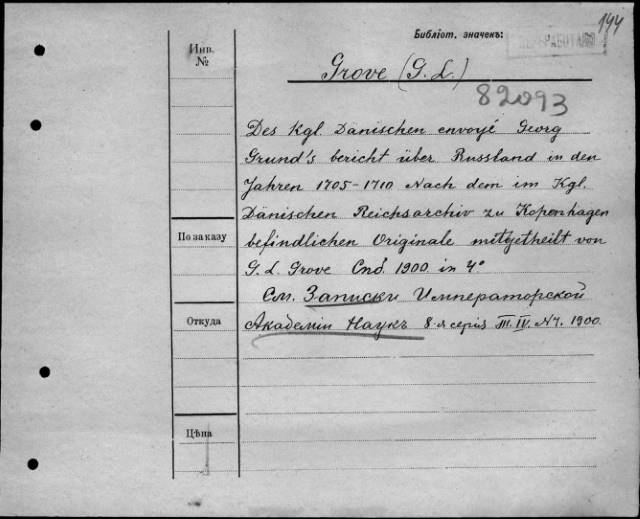 194
Библіот. значекъ:
Инв.
№
Grove (G. L.)
82093
Des Kgl. Dänischen envoyé Georg
Grund's bericht über Russland in den
Jahren 1705-1710 Nach dem im Kgl.
Dänischen Reichsarchiv zu Kopenhagen
По заказу
befindlichen Originale mitgetheilt von
G. L. Grove Спб. 1900. in 4°
См. Записки Императорской
Откуда
Академіи Наукъ 8-я серія III. IV. №7. 1900.
Цѣна